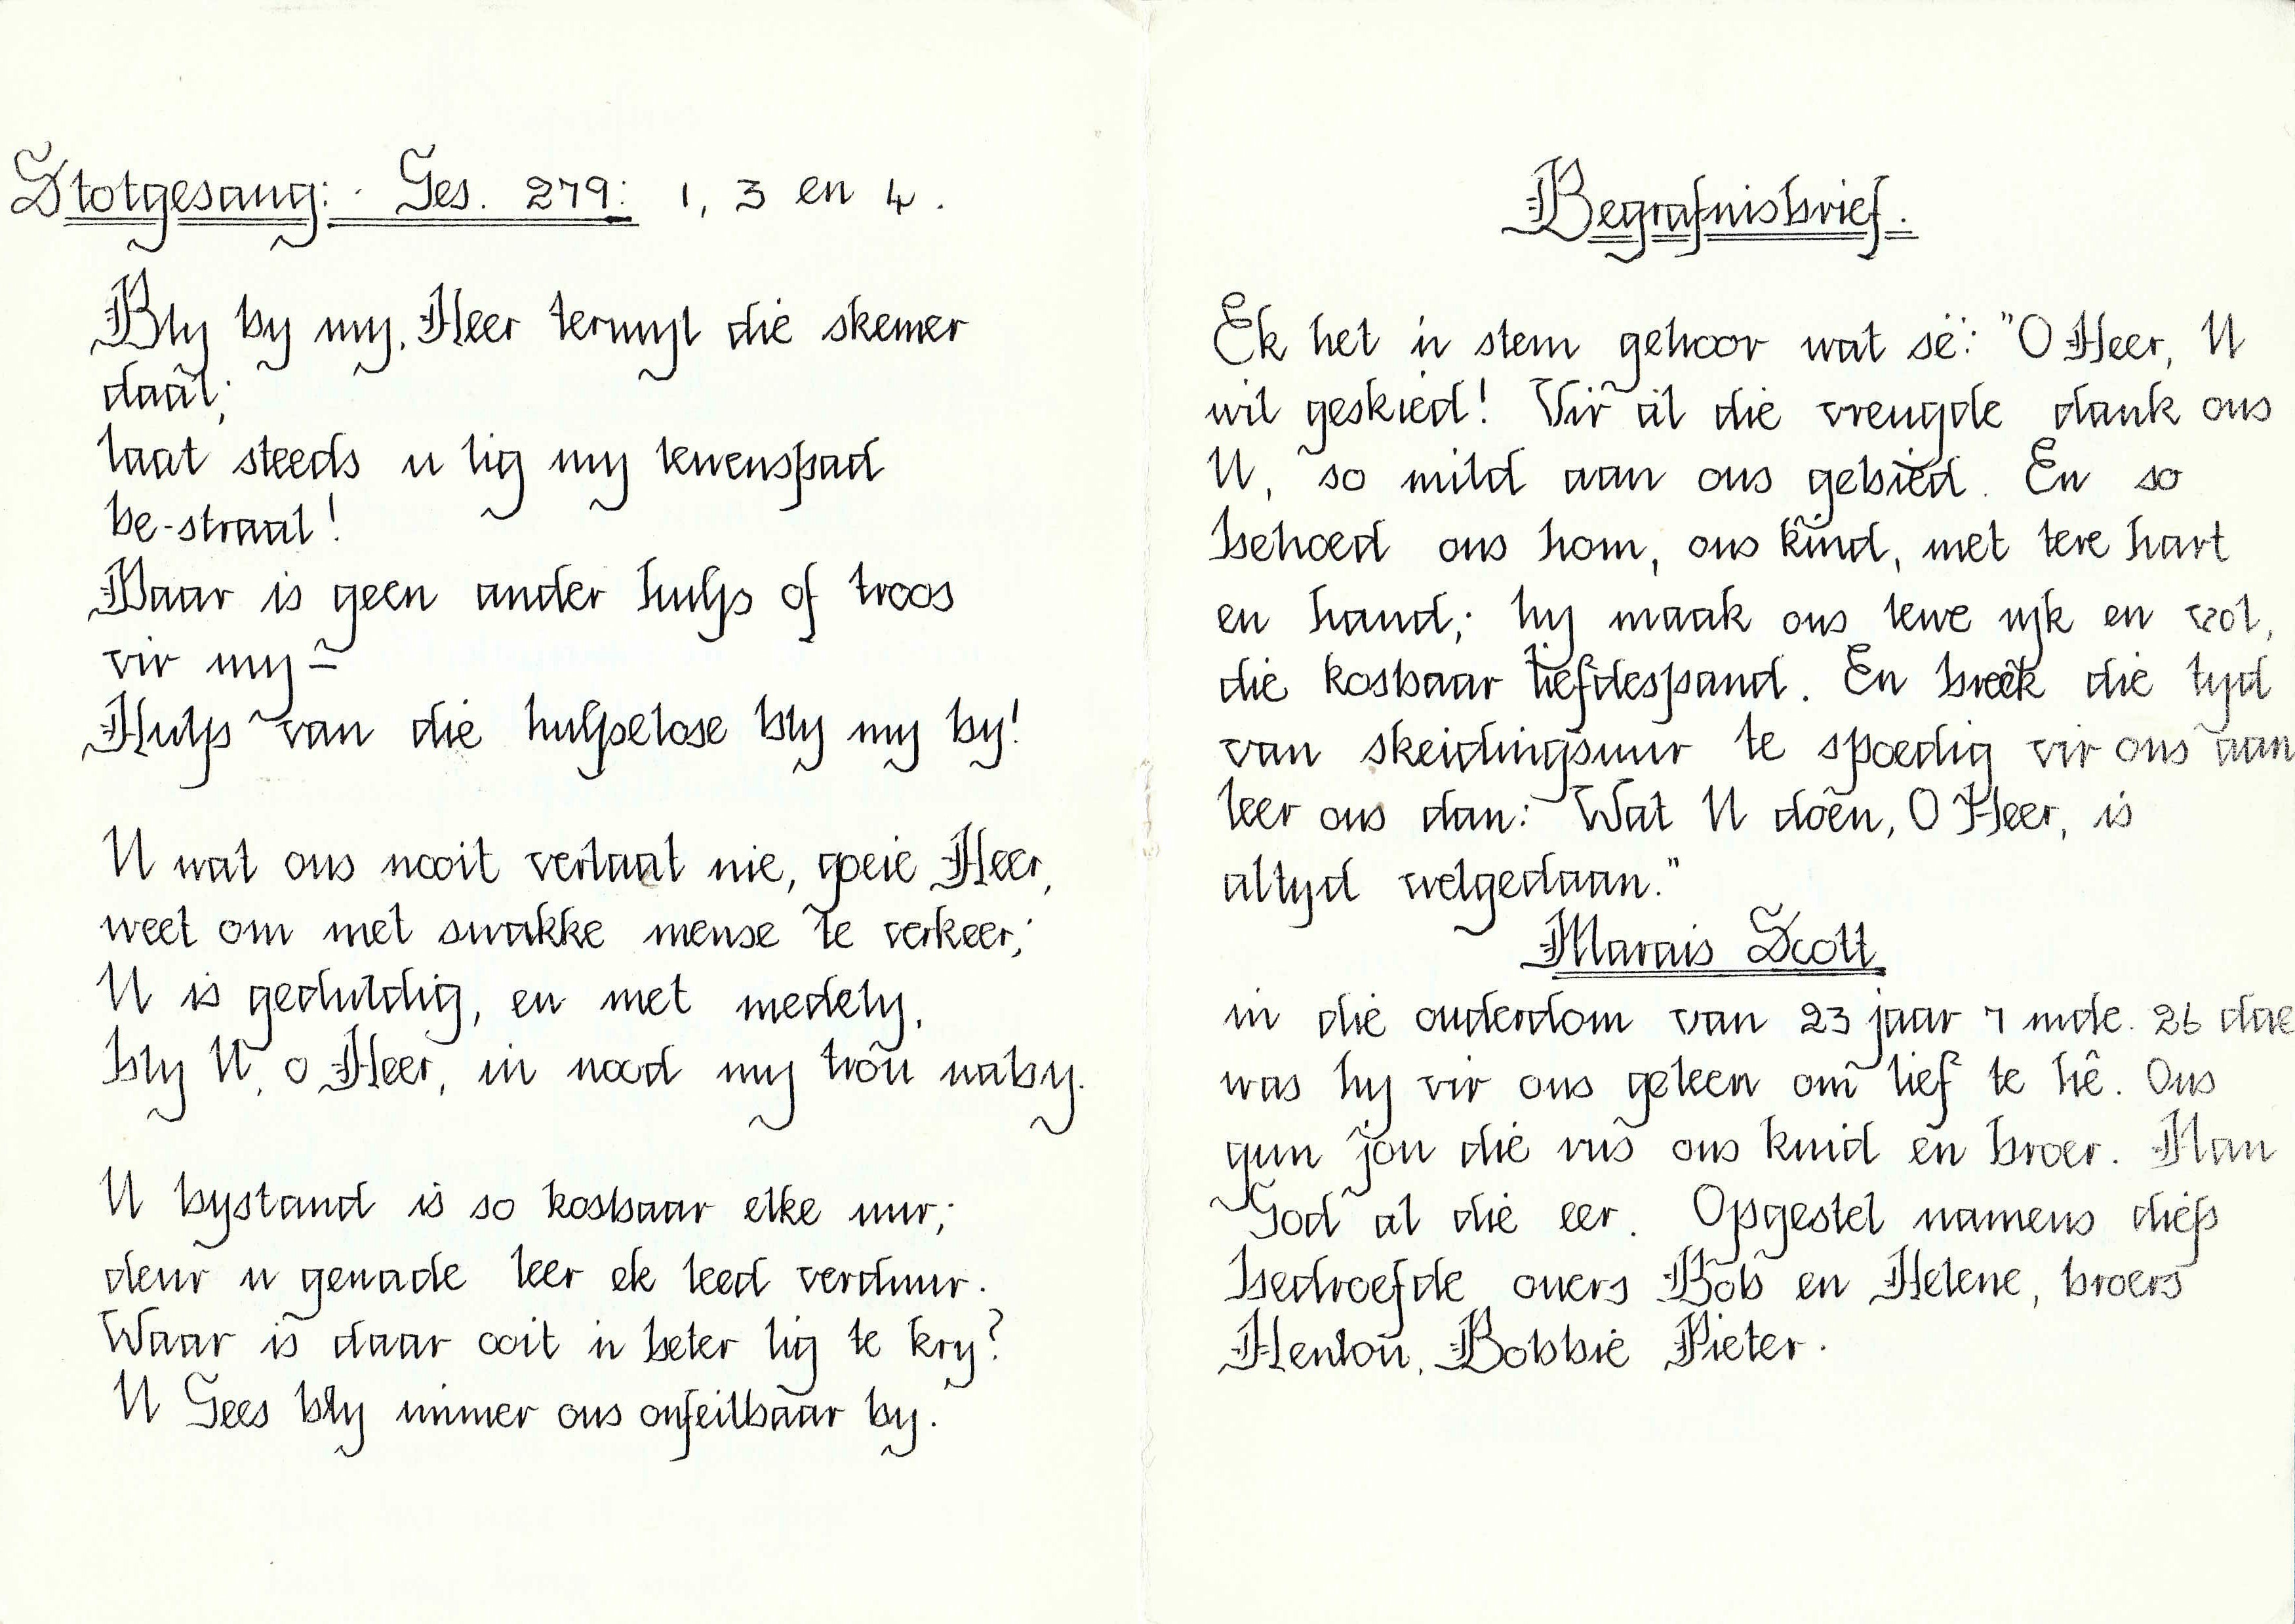 Slotgesang: Ges. 279: 1, 3 en 4.
Bly by my, Heer terwyl die skemer
daal;
laat steeds u lig my lewenspad
be-straal!
Daar is geen ander hulp of troos
vir my –
Hulp van die hulpelose bly my by!
U wat ons nooit verlaat nie, goeie Heer,
weet om met swakke mense te verkeer;
U is geduldig, en met medely,
bly U, o Heer, in nood my trou naby.
U bystand is so kosbaar elke uur;
deur u genade leer ek leed verduur.
Waar is daar ooit 'n beter lig te kry?
U Gees bly immer ons onfeilbaar by.
Begrafnisbrief.
Ek het 'n stem gehoor wat sê: "O Heer, U
wil geskied! Vir al die vreugde dank ons
U, so mild aan ons gebied. En so
behoed ons hom, ons kind, met tere hart
en hand; hy maak ons lewe ryk en vol,
die kosbaar liefdespand. En breek die tyd
van skeidingsuur te spoedig vir ons aan
leer ons dan: Wat U doen, O Heer, is
altyd welgedaan."
Marais Scott
in die ouderdom van 23 jaar 7 mde. 26 dae
was hy vir ons geleen om lief te hê. Ons
gun jou die rus ons kind en broer. Aan
God al die eer. Opgestel namens diep
bedroefde ouers Bob en Helene, broers
Henlou, Bobbie Pieter.